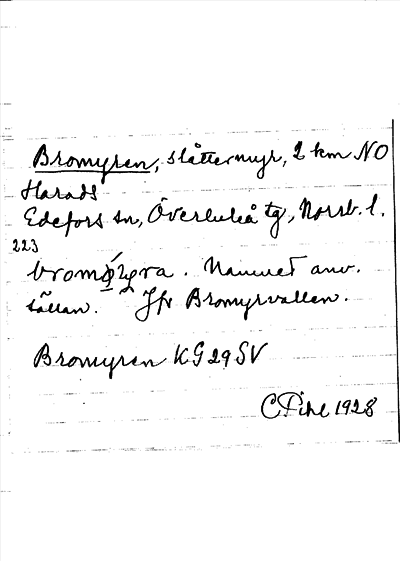 Bromyren, slåttermyr, 2 km NO
Harads
Edefors sn, Överluleå tg, Norrb. l.
223
Namnet anv.
sällan. Jfr Bromyrvallen.
Bromyren KG 29 SV
C Pihl 1928